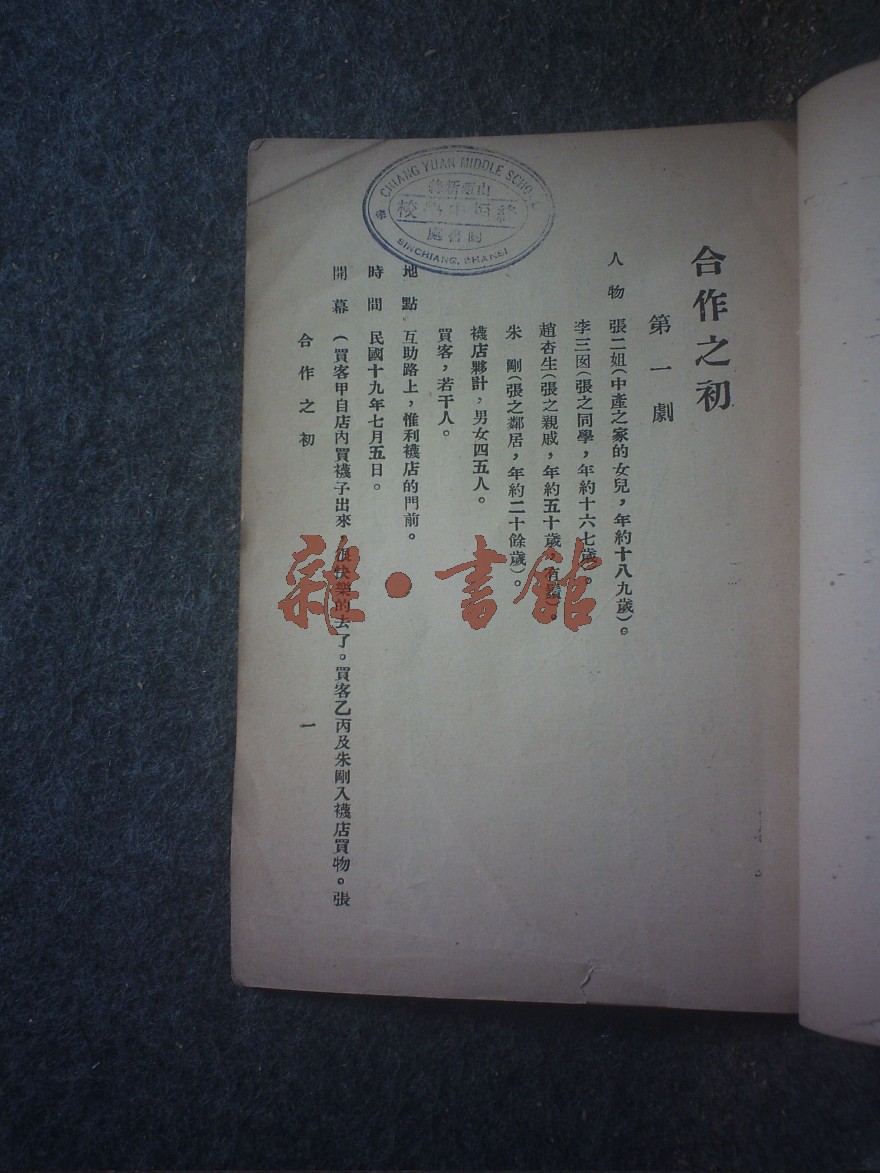 合作之初
第一劇
人物 張二姐(中產之家的女兒,年約十八九歲)。
李三囡(張之同學,年約十六七歲)。
趙杏生(張之親戚,年約五十歲,有鬚)。
朱剛(張之鄰居,年約二十餘歲)。
襪店夥計,男女四五人。
買客,若干人。
地點 互助路上,惟利襪店的門前。
時間 民國十九年七月五日。
開幕 (買客甲自店內買襪子出來,很快樂的去了。買客乙丙及朱剛入襪店買物。張
合作之初 一
CHIANG YUAN MIDDLE SCHOOL
山西新絳
校
圖書處
SINCHIANG, SHANSI
雜·書館